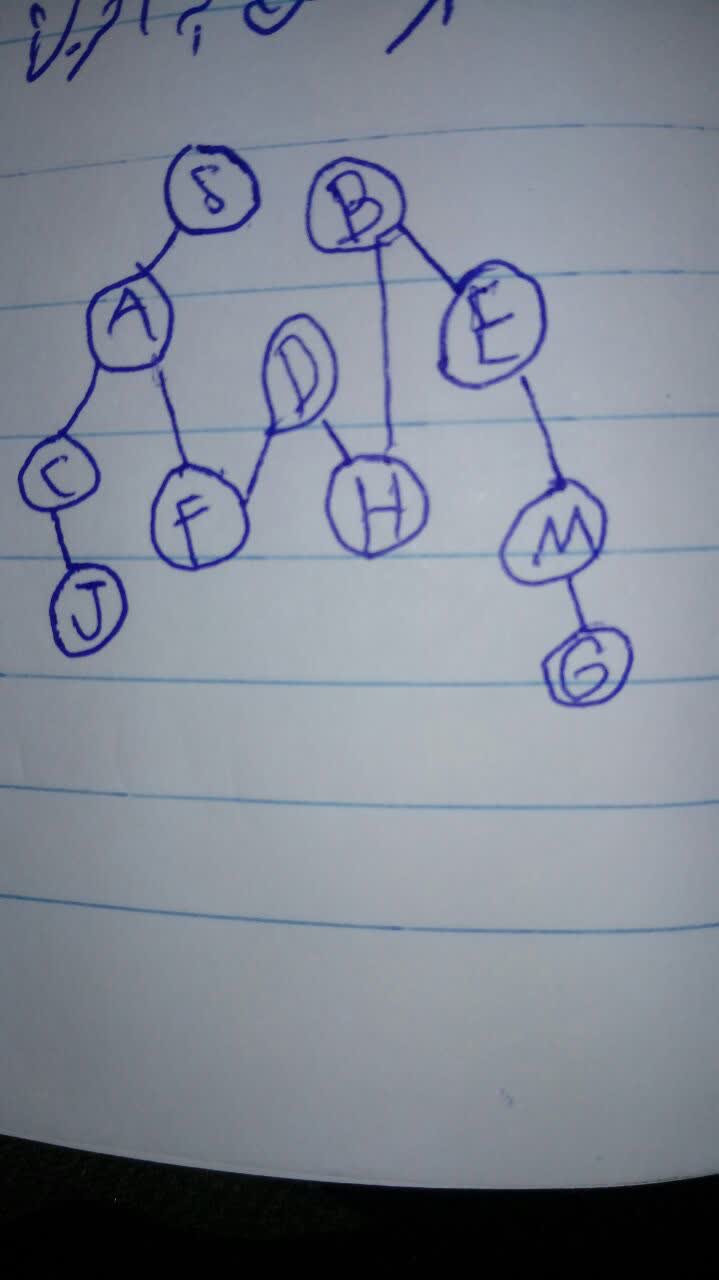 S B
A E
D
C F H M
J G